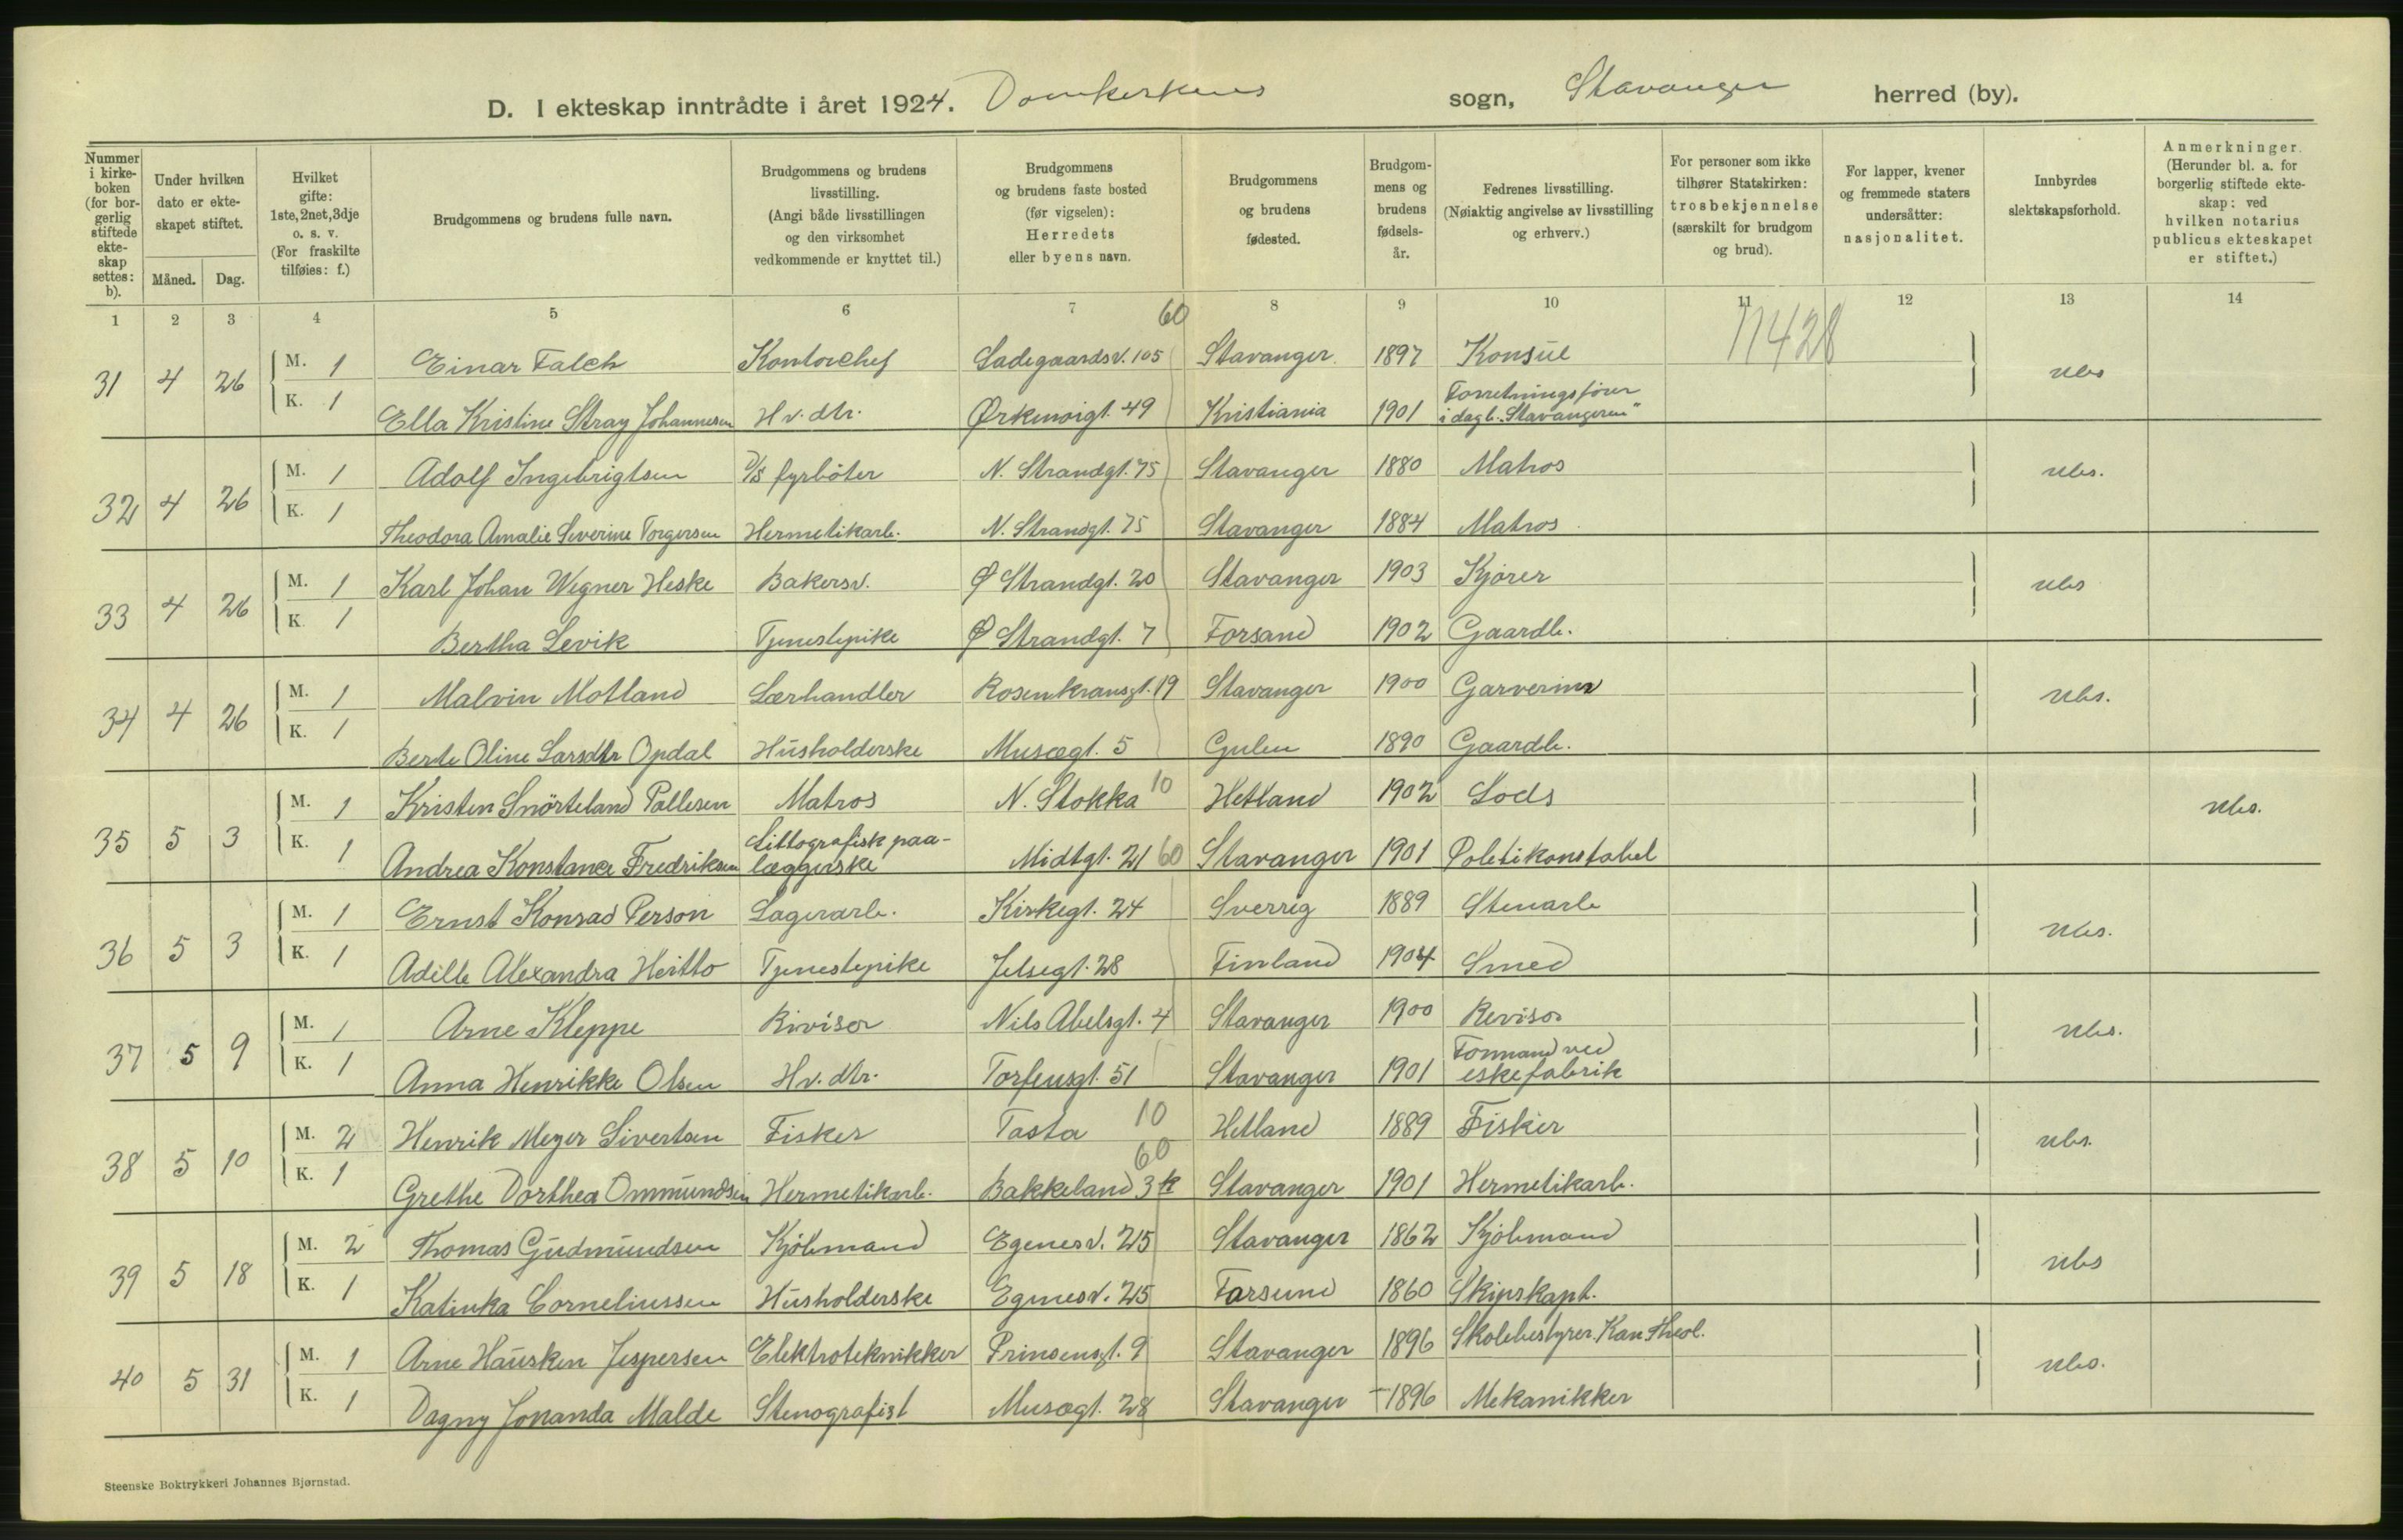 D. I ekteskap inntrådte i året 1924. Domkirkens sogn, Stavanger herred (by).
Nummer i kirkeboken (for borgerlig stiftede ekteskap settes: b).
Under hvilken dato er ekteskapet stiftet.
Måned. Dag.
Hvilket gifte: 1ste, 2net, 3dje o. s. v. (For fraskilte tilføies: f.)
Brudgommens og brudens fulle navn.
Brudgommens og brudens livsstilling. (Angi både livsstillingen og den virksomhet vedkommende er knyttet til.)
Brudgommens og brudens faste bosted (før vigselen): Herredets eller byens navn.
Brudgommens og brudens fødested.
Brudgommens og brudens fødselsår.
Fedrenes livsstilling. (Nøiaktig angivelse av livsstilling og erhverv.)
For personer som ikke tilhører Statskirken: trosbekjennelse (særskilt for brudgom og brud).
For lapper, kvener og fremmede staters undersåtter: nasjonalitet.
Innbyrdes slektskapsforhold.
Anmerkninger. (Herunder bl. a. for borgerlig stiftede ekteskap: ved hvilken notarius publicus ekteskapet er stiftet.)
1 2 3 4 5 6 7 8 9 10 11 12 13 14
60 11428
31 4 26 M. 1 Einar Falch Kontorchef Ladegaardsv. 105 Stavanger 1897 Konsul ubs
K. 1 Ella Kristine Stray Johannesen Hv. dtr. Ørkenvigt. 49 Kristiania 1901 Forretningsfører i dagb. "Stavangeren"
32 4 26 M. 1 Adolf Ingebrigtsen D/S fyrböter N. Strandgt. 75 Stavanger 1880 Matros ubs.
K. 1 Theodora Amalie Severine Torgersen Hermetikarb. N. Strandgt. 75 Stavanger 1884 Matros
33 4 26 M. 1 Karl Johan Wegner Heske Bakersv. Ø Strandgt. 20 Stavanger 1903 Kjörer ubs
K. 1 Bertha Levik Tjenestepike Ø Strandgt. 7 Forsand 1902 Gaardb.
34 4 26 M. 1 Malvin Motland Lærhandler Rosenkransgt. 19 Stavanger 1900 Garverim ubs.
K. 1 Berte Oline Larsdtr Opdal Husholderske Musægt. 5 Gulen 1890 Gaardb.
35 5 3 M. 1 Kristen Snörteland Pallesen Matros N. Stokka 10 Hetland 1902 Lods ubs.
K. 1 Andrea Konstance Fredriksen Littografisk paalæggerske Midtgt. 21 60 Stavanger 1901 Politikonstabel
36 5 3 M. 1 Ernst Konrad Person Lagerarb. Kirkegt. 24 Sverrig 1889 Stenarb ubs.
K. 1 Adille Alexandra Heitto Tjenestepike Jelsegt. 28 Finland 1904 Smed
37 5 9 M. 1 Arne Kleppe Rivisor Nils Abelsgt. 4 Stavanger 1900 Revisor ubs.
K. 1 Anna Henrikke Olsen Hv. dtr. Torfeusgt. 51 Stavanger 1901 Formand ved eskefabrik
38 5 10 M. 2 Henrik Meyer Sivertsen Fisker Tasta 10 Hetland 1889 Fisker ubs.
K. 1 Grethe Dorthea Ommundsen Hermetikarb. Bakkeland 3 k 60 Stavanger 1901 Hermetikarb.
39 5 18 M. 2 Thomas Gudmundsen Kjöbmand Egenesv. 25 Stavanger 1862 Kjöbmand ubs
K. 1 Katinka Corneliussen Husholderske Egenesv. 25 Farsund 1860 Skipskapt.
40 5 31 M. 1 Arne Hausken Jespersen Elektrotekniker Prinsensgt. 9 Stavanger 1896 Skolebestyrer. Kan Theol. ubs.
K. 1 Dagny Jonanda Malde Stenografist Musægt. 28 Stavanger 1896 Mekanikker
Steenske Boktrykkeri Johannes Bjørnstad.